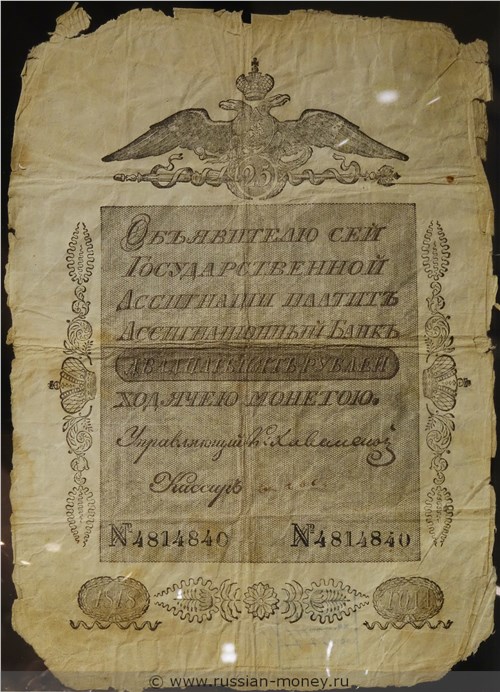 25
ОБЪЯВИТЕЛЮ СЕЙ
ГОСУДАРСТВЕННОЙ
АССИГНАЦИИ ПЛАТИТЪ
АССИГНАЦІОННЫЙ БАНКЪ
ДВАДЦАТЬПЯТЬ РУБЛЕЙ
ХОДЯЧЕЮ МОНЕТОЮ.
Управляющий
Кассиръ
№4814840 №4814840
1818
© www.russian-money.ru